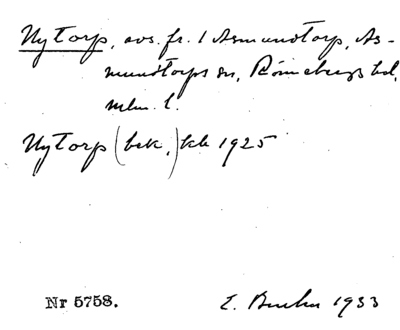 Nytorp, avs. fr. 1 Asmundtorp, As-
mundtorps sn, Rönnebergs hd,
mlm. l.
Nytorp (bek.) kb 1925
Nr 5758.
E. 1933